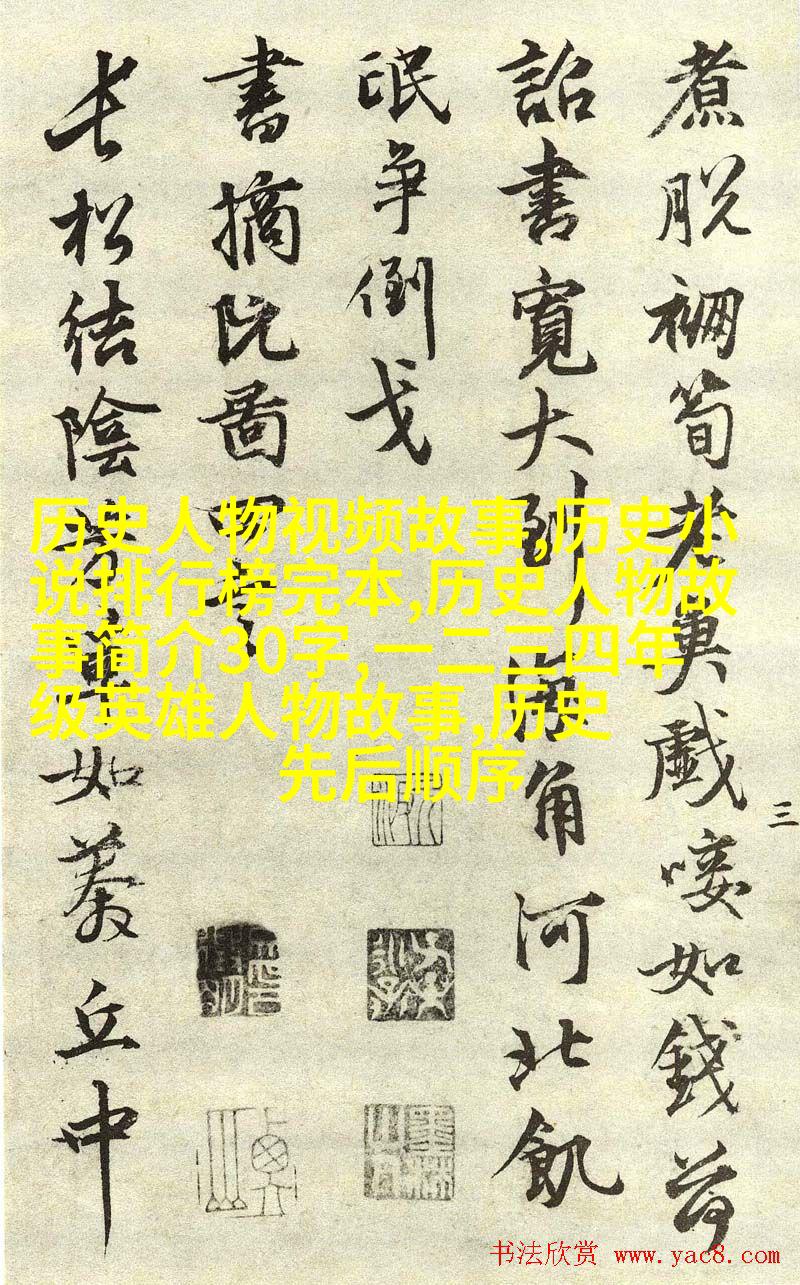 煮脱筍老戲唼如錢荷
詔書寬大到角河北飢
氓爭倒戈
書摘阮啚
長松結陰如丘中
三
历史人物视频故事,历史小
说排行榜完本,历史人物故
事简介30字,一二三四年
级英雄人物故事,历史
先后顺序
书法欣赏 www.yac8.com